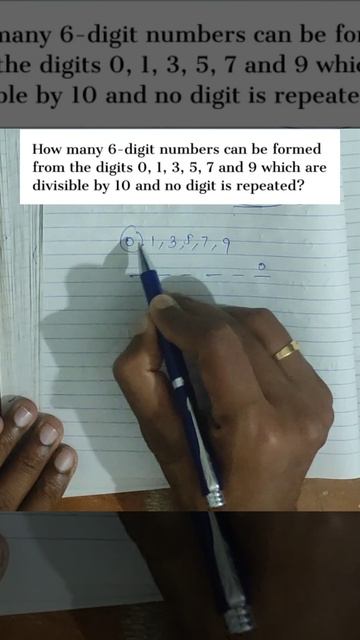 many 6-digit numbers can be fo
the digits 0, 1, 3, 5, 7 and 9 whic
ble by 10 and no digit is repeate
How many 6-digit numbers can be formed
from the digits 0, 1, 3, 5, 7 and 9 which are
divisible by 10 and no digit is repeated?
0, 1, 3, 5, 7, 9
0